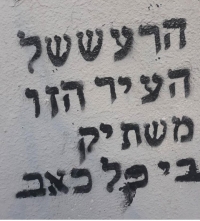 הרעש של
העיר הזו
משתיק
בי כל כאב